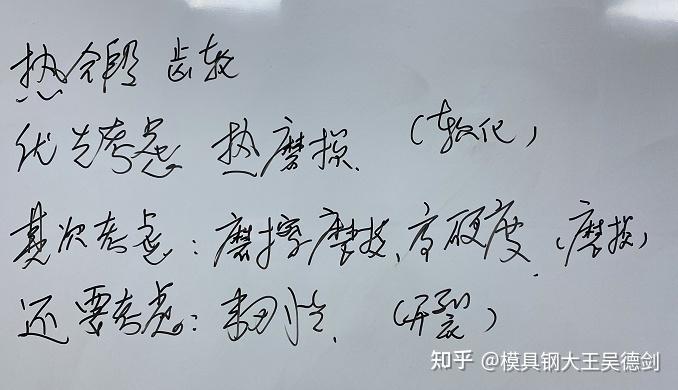 热锻 齿轮
优先考虑 热磨损. (软化)
其次考虑: 磨擦磨损、高硬度. (磨损)
还要考虑: 韧性. (开裂)
知乎 @模具钢大王吴德剑